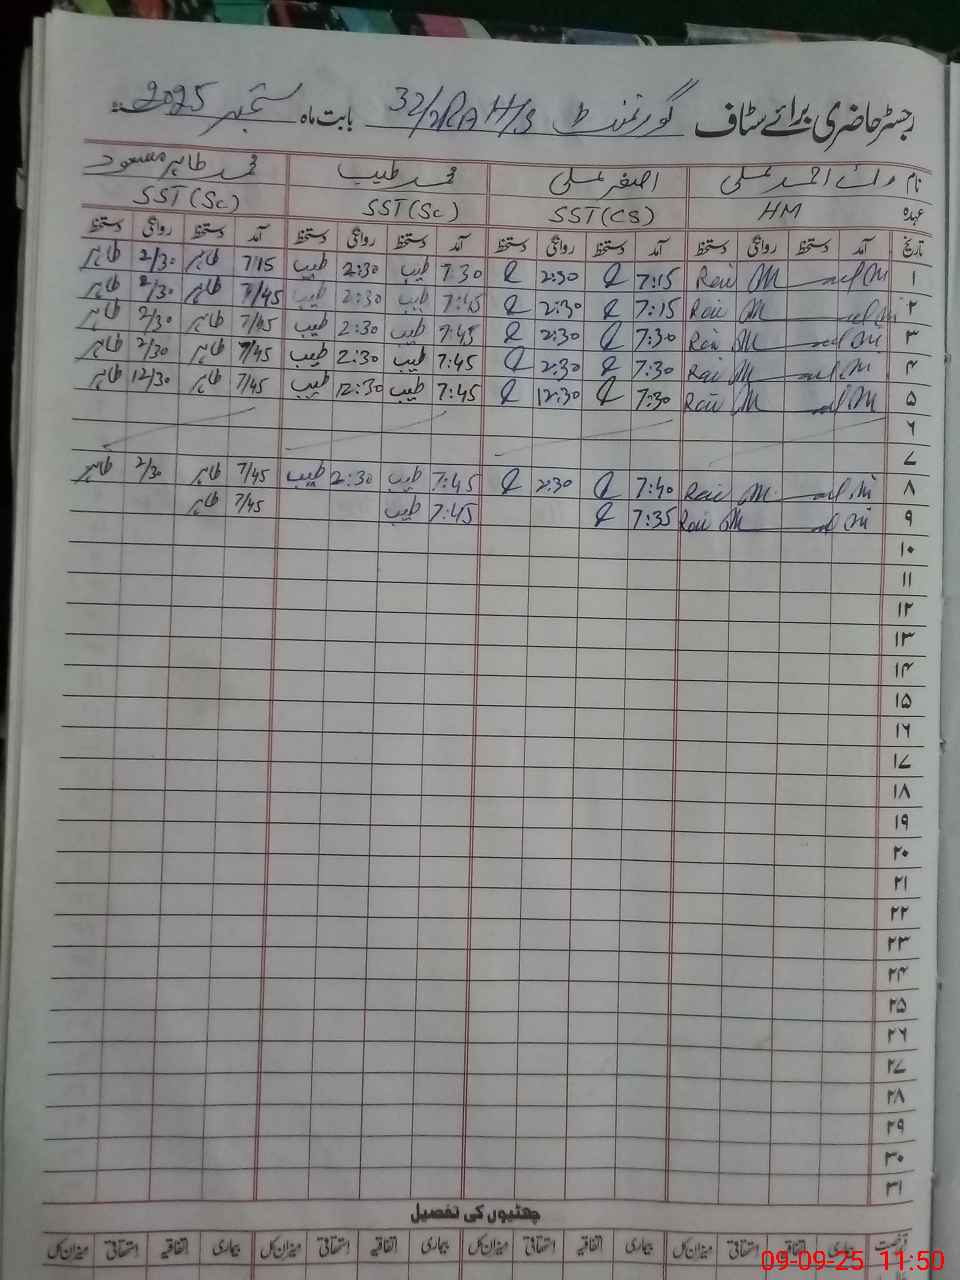 رجسٹر حاضری برائے سٹاف گورنمنٹ 32/2RA H/S بابت ماہ ستمبر 2025ء
نام رائے احمد علی اصغر علی محمد طیب محمد طاہر مسعود
عہدہ HM SST (CS) SST (Sc) SST (Sc)
تاریخ آمد دستخط روانگی دستخط آمد دستخط روانگی دستخط آمد دستخط روانگی دستخط آمد دستخط روانگی دستخط
۱ Rai 7:15 2:30 7:30 طیب 2:30 طیب 7/15 طاہر 2/30 طاہر
۲ Rai 7:15 2:30 7:45 طیب 2:30 طیب 7/45 طاہر 2/30 طاہر
۳ Rai 7:30 2:30 7:45 طیب 2:30 طیب 7/45 طاہر 2/30 طاہر
۴ Rai 7:30 2:30 7:45 طیب 2:30 طیب 7/45 طاہر 2/30 طاہر
۵ Rai 7:30 12:30 7:45 طیب 12:30 طیب 7/45 طاہر 12/30 طاہر
۶
۷
۸ Rai 7:40 2:30 7:45 طیب 2:30 طیب 7/45 طاہر 2/30 طاہر
۹ Rai 7:35 7:45 طیب 7/45 طاہر
۱۰
۱۱
۱۲
۱۳
۱۴
۱۵
۱۶
۱۷
۱۸
۱۹
۲۰
۲۱
۲۲
۲۳
۲۴
۲۵
۲۶
۲۷
۲۸
۲۹
۳۰
۳۱
چھٹیوں کی تفصیل
رخصت بیماری اتفاقیہ استحقاقی میزان کل بیماری اتفاقیہ استحقاقی میزان کل بیماری اتفاقیہ استحقاقی میزان کل بیماری اتفاقیہ استحقاقی میزان کل
09-09-25 11:50